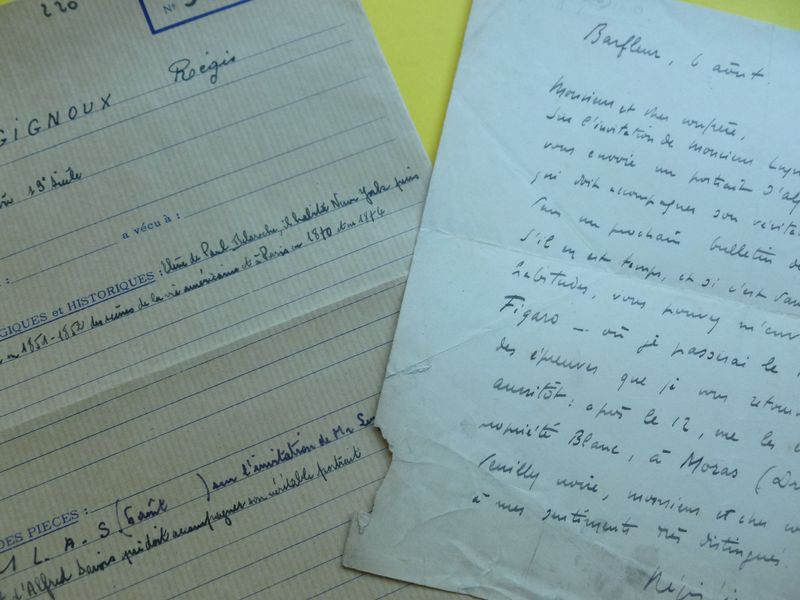 220
N°
GIGNOUX Régis
19e Siècle
a vécu à :
GIQUES et HISTORIQUES : Elève de Paul Delaroche, il habita New York puis
en 1851-1852 des scènes de la vie américaine et à Paris en 1870 et en 1874
DES PIECES :
L. A. S (6 août) sur l'invitation de Mr
d'Alfred Savoir qui doit accompagner son véritable portrait
Barfleur, 6 août.
Monsieur et cher confrère,
Sur l'invitation de Monsieur
vous envoie un portrait d'Alf
qui doit accompagner son vérita
dans un prochain bulletin de
S'il en est temps, et si c'est dans
habitudes, vous pouvez m'env
Figaro — où je passerai le
des épreuves que je vous retour
aussitôt : après le 12, me les
propriété Blanc, à Moras (Dr
Veuillez croire, monsieur et cher co
à mes sentiments très distingués.
Régis